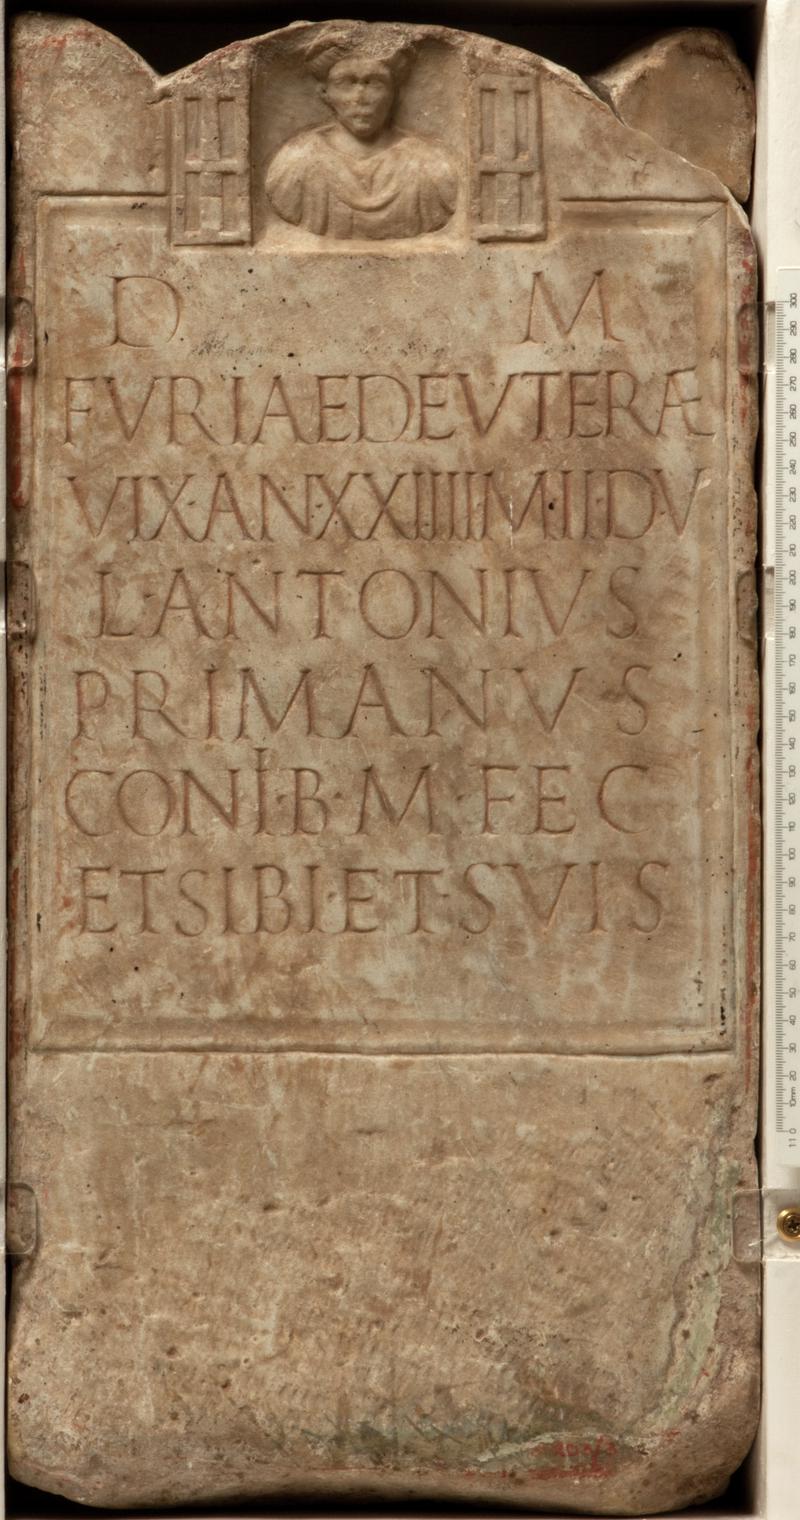 D M
FVRIAEDEVTERÆ
VIXANXXIIIIM·IIDV
L·ANTONIVS
PRIMANVS
CONI·B·M FEC
ETSIBI·ET·SVIS